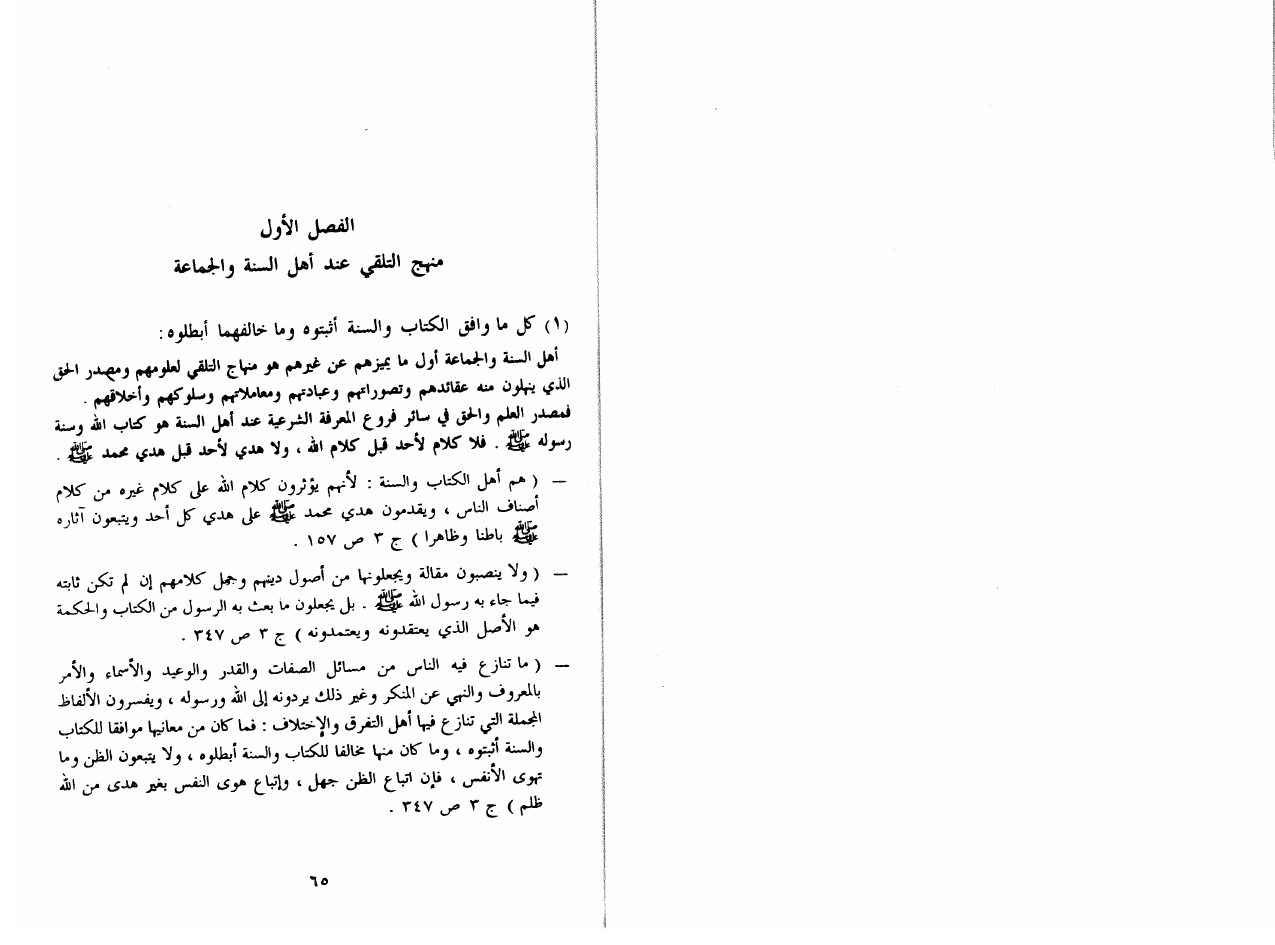 الفصل الأول
منهج التلقي عند أهل السنة والجماعة
(١) كل ما وافق الكتاب والسنة أثبتوه وما خالفهما أبطلوه :
أهل السنة والجماعة أول ما يميزهم عن غيرهم هو منهاج التلقي لعلومهم ومصدر الحق
الذي ينهلون منه عقائدهم وتصوراتهم وعبادتهم ومعاملاتهم وسلوكهم وأخلاقهم .
فمصدر العلم والحق في سائر فروع المعرفة الشرعية عند أهل السنة هو كتاب الله وسنة
رسوله ﷺ . فلا كلام لأحد قبل كلام الله ، ولا هدي لأحد قبل هدي محمد ﷺ .
— ( هم أهل الكتاب والسنة : لأنهم يؤثرون كلام الله على كلام غيره من كلام
أصناف الناس ، ويقدمون هدي محمد ﷺ على هدي كل أحد ويتبعون آثاره
ﷺ باطنا وظاهرا ) ج ٣ ص ١٥٧ .
— ( ولا ينصبون مقالة ويجعلونها من أصول دينهم وجمل كلامهم إن لم تكن ثابته
فيما جاء به رسول الله ﷺ . بل يجعلون ما بعث به الرسول من الكتاب والحكمة
هو الأصل الذي يعتقدونه ويعتمدونه ) ج ٣ ص ٣٤٧ .
— ( ما تنازع فيه الناس من مسائل الصفات والقدر والوعيد والأسماء والأمر
بالمعروف والنهي عن المنكر وغير ذلك يردونه إلى الله ورسوله ، ويفسرون الألفاظ
المجملة التي تنازع فيها أهل التفرق والإختلاف : فما كان من معانيها موافقا للكتاب
والسنة أثبتوه ، وما كان منها مخالفا للكتاب والسنة أبطلوه ، ولا يتبعون الظن وما
تهوى الأنفس ، فإن اتباع الظن جهل ، وإتباع هوى النفس بغير هدى من الله
ظلم ) ج ٣ ص ٣٤٧ .
٦٥